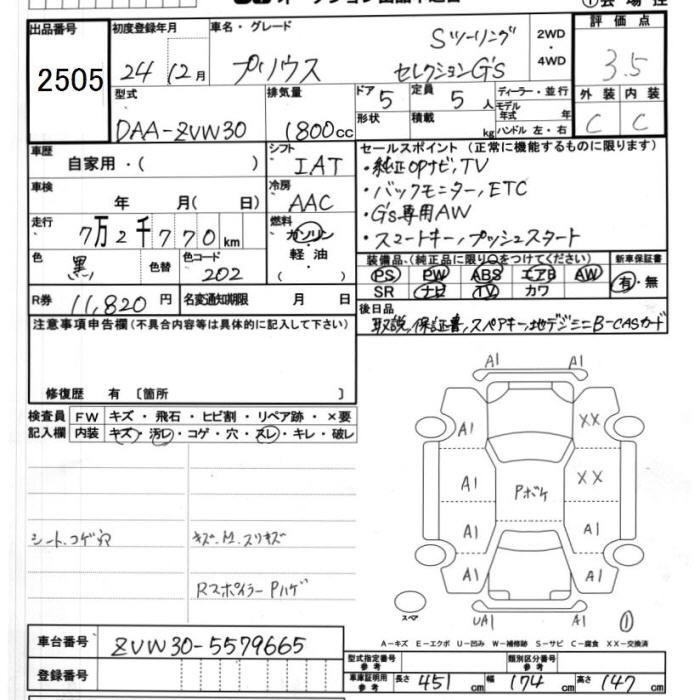 出品番号
2505
初度登録年月
24 12月
車名・グレード
プリウス
Sツーリング
セレクションG's
2WD
・
4WD
評価点
3.5
型式
DAA-ZVW30
排気量
1800cc
ドア 5
形状
定員 5 人
積載 kg
ディーラー・並行
モデル年式 年
ハンドル 左・右
外装 内装
C C
車歴
自家用・( )
シフト
IAT
車検
年 月( 日)
冷房
AAC
走行
7万2千770km
燃料
ガソリン
軽油
・
色
黒
色替
色コード
202
R券 11,820円
名変通知期限 月 日
セールスポイント(正常に機能するものに限ります)
・純正OPナビ,TV
・バックモニター,ETC
・G's専用AW
・スマートキー,プッシュスタート
装備品(純正品に限り○をつけてください)
PS PW ABS エアB AW
SR ナビ TV カワ
新車保証書
有・無
後日品
取説,保証書,スペアキー,地デジミニB-CASカード
注意事項申告欄(不具合内容等は具体的に記入して下さい)
修復歴 有 〔箇所 〕
検査員記入欄
FW キズ・飛石・ヒビ割・リペア跡・×要
内装 キズ・汚レ・コゲ・穴・スレ・キレ・破レ
シート.コゲ穴
キズ.凹.スリキズ
RスポイラーPハゲ
A1 A1
A1 XX
A1 Pボケ XX
A1 A1
A1 A1
UA1 A1
スペア
①
A-キズ E-エクボ U-凹み W-補修跡 S-サビ C-腐食 XX-交換済
車台番号 ZVW30-5579665
登録番号
型式指定番号 参考
類別区分番号 参考
車庫証明用 参考 長さ 451cm 幅 174cm 高さ 147cm